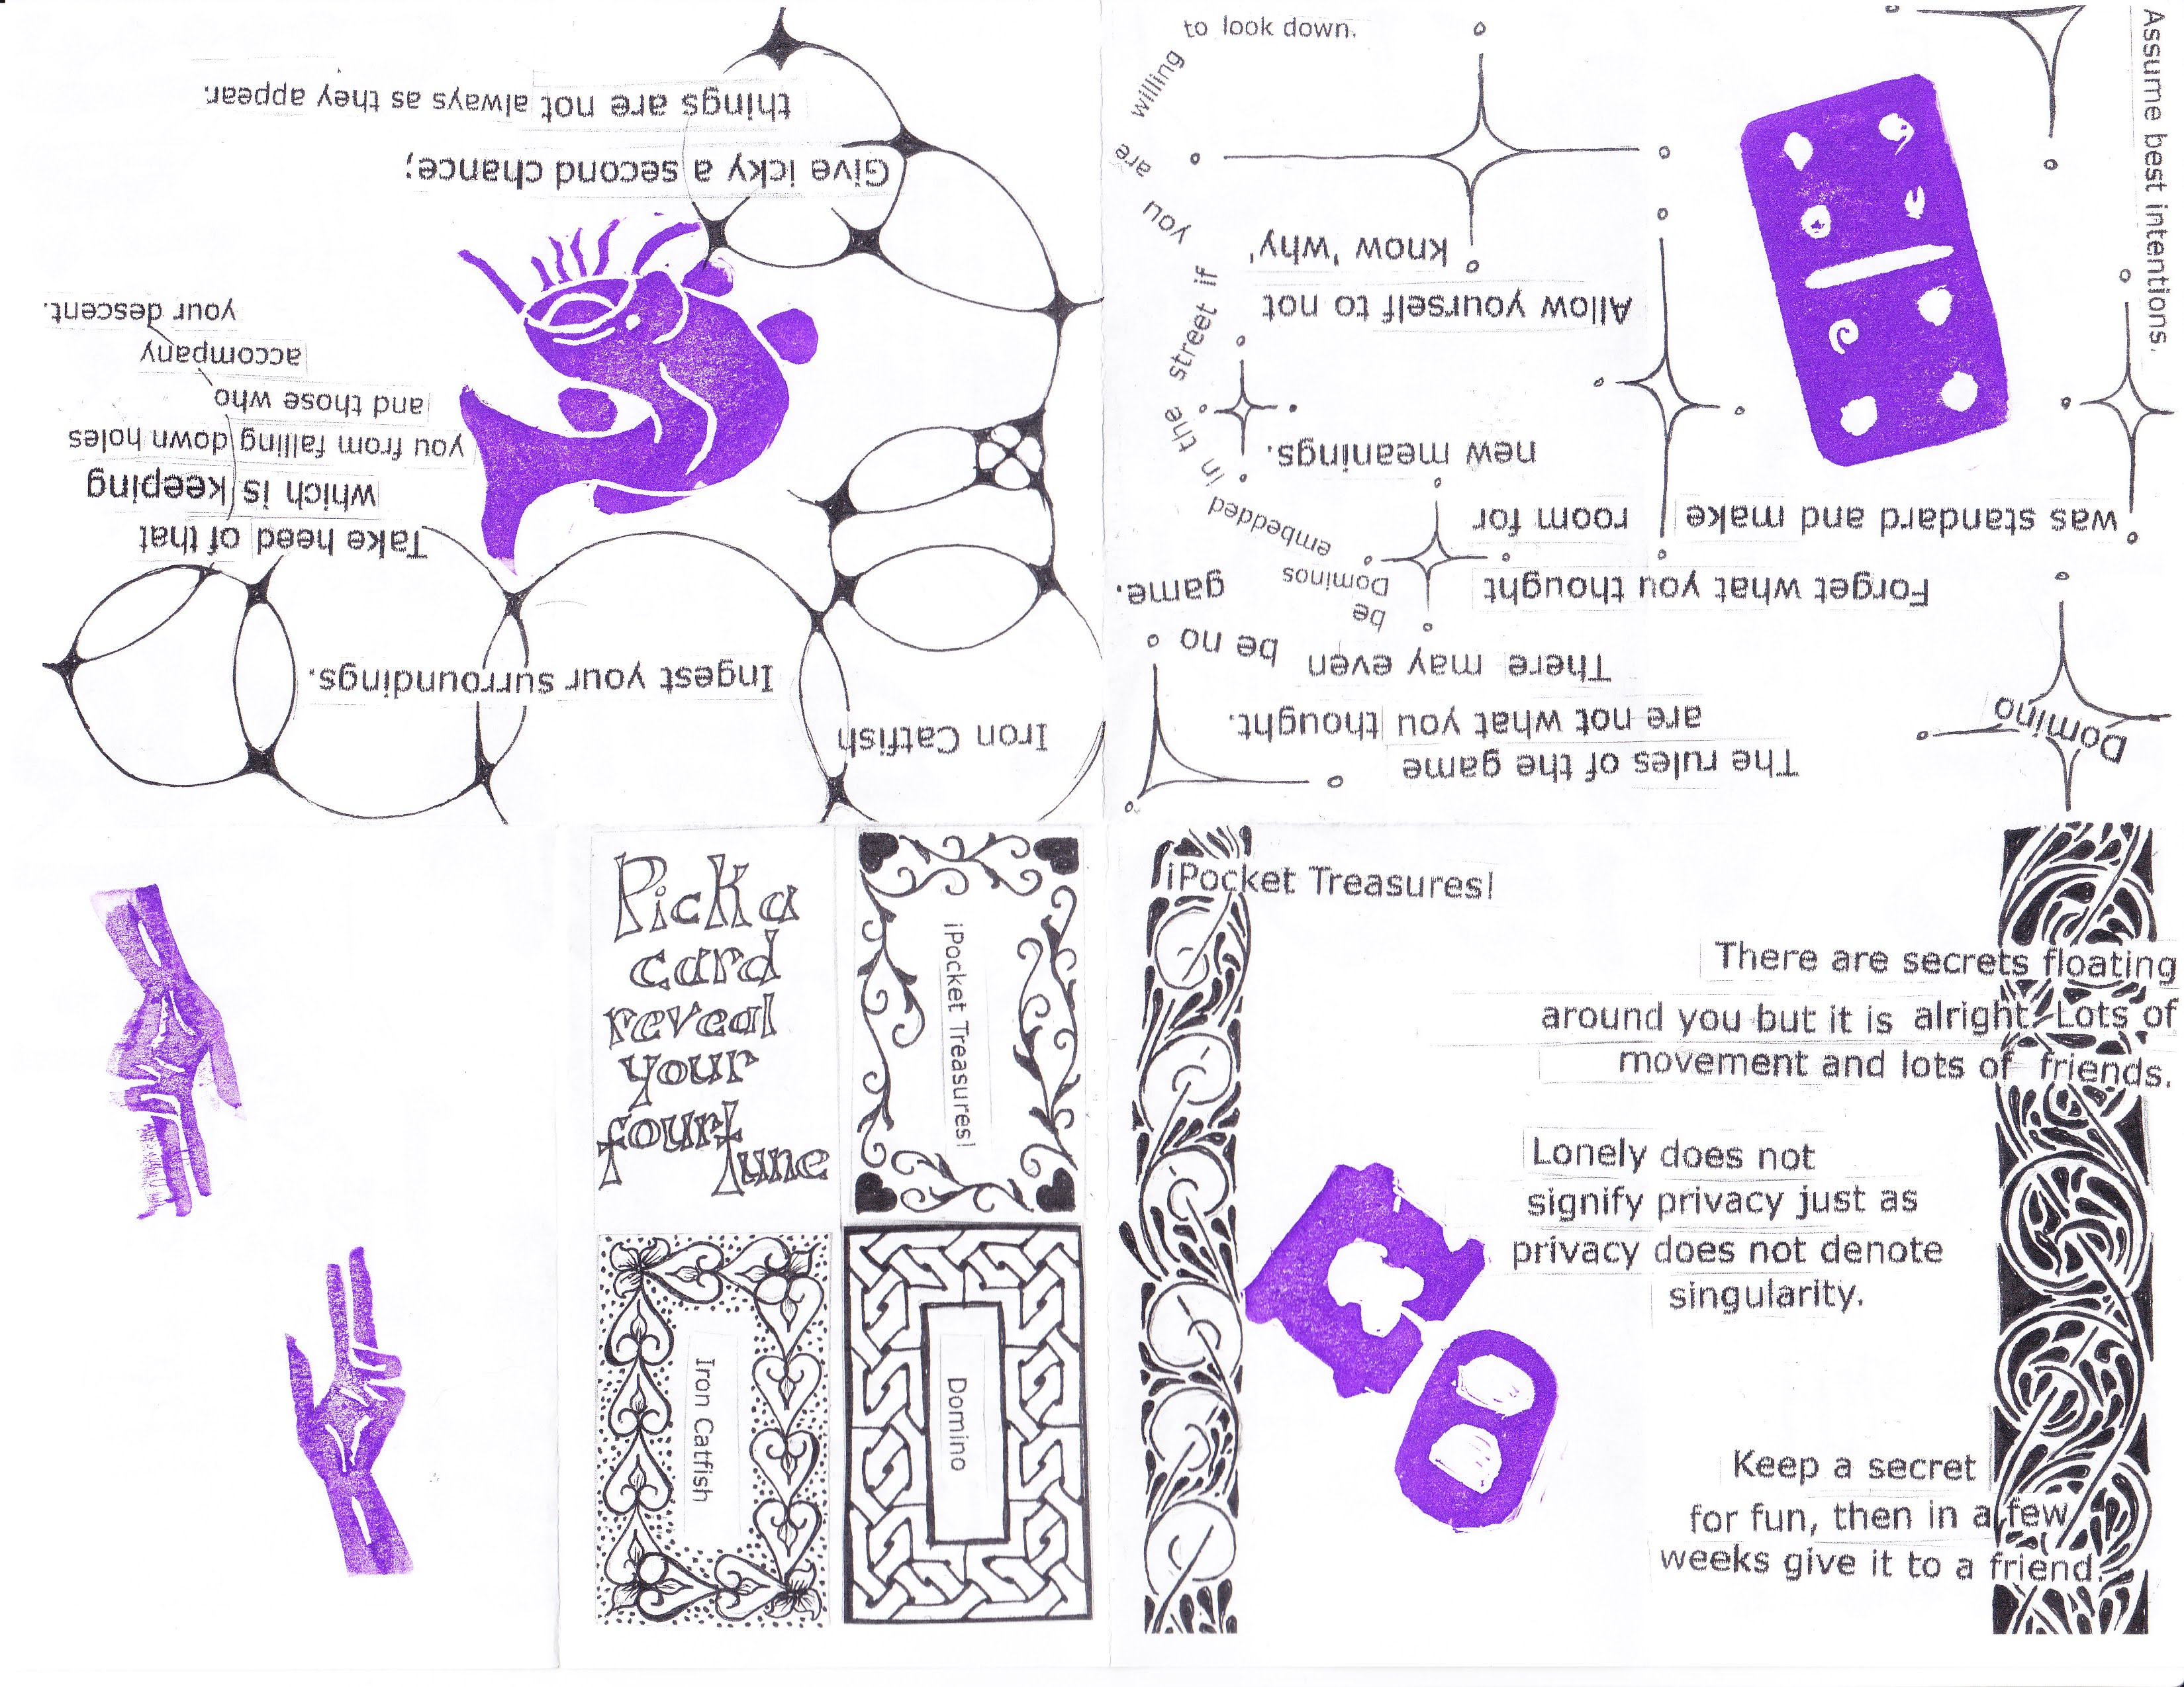 Pick a
card
reveal
your
fourtune
¡Pocket Treasures!
Iron Catfish
Domino
¡Pocket Treasures!
There are secrets floating
around you but it is alright. Lots of
movement and lots of friends.
Lonely does not
signify privacy just as
privacy does not denote
singularity.
Keep a secret
for fun, then in a few
weeks give it to a friend.
Domino
The rules of the game
are not what you thought.
There may even be no
game.
Forget what you thought
was standard and make
room for
new meanings.
Allow yourself to not
know 'why'
Assume best intentions.
Dominos
be
embedded
in the street if
you are willing
to look down.
Iron Catfish
Ingest your surroundings.
Take heed of that
which is keeping
you from falling down holes
and those who
accompany
your descent.
Give icky a second chance;
things are not always as they appear.